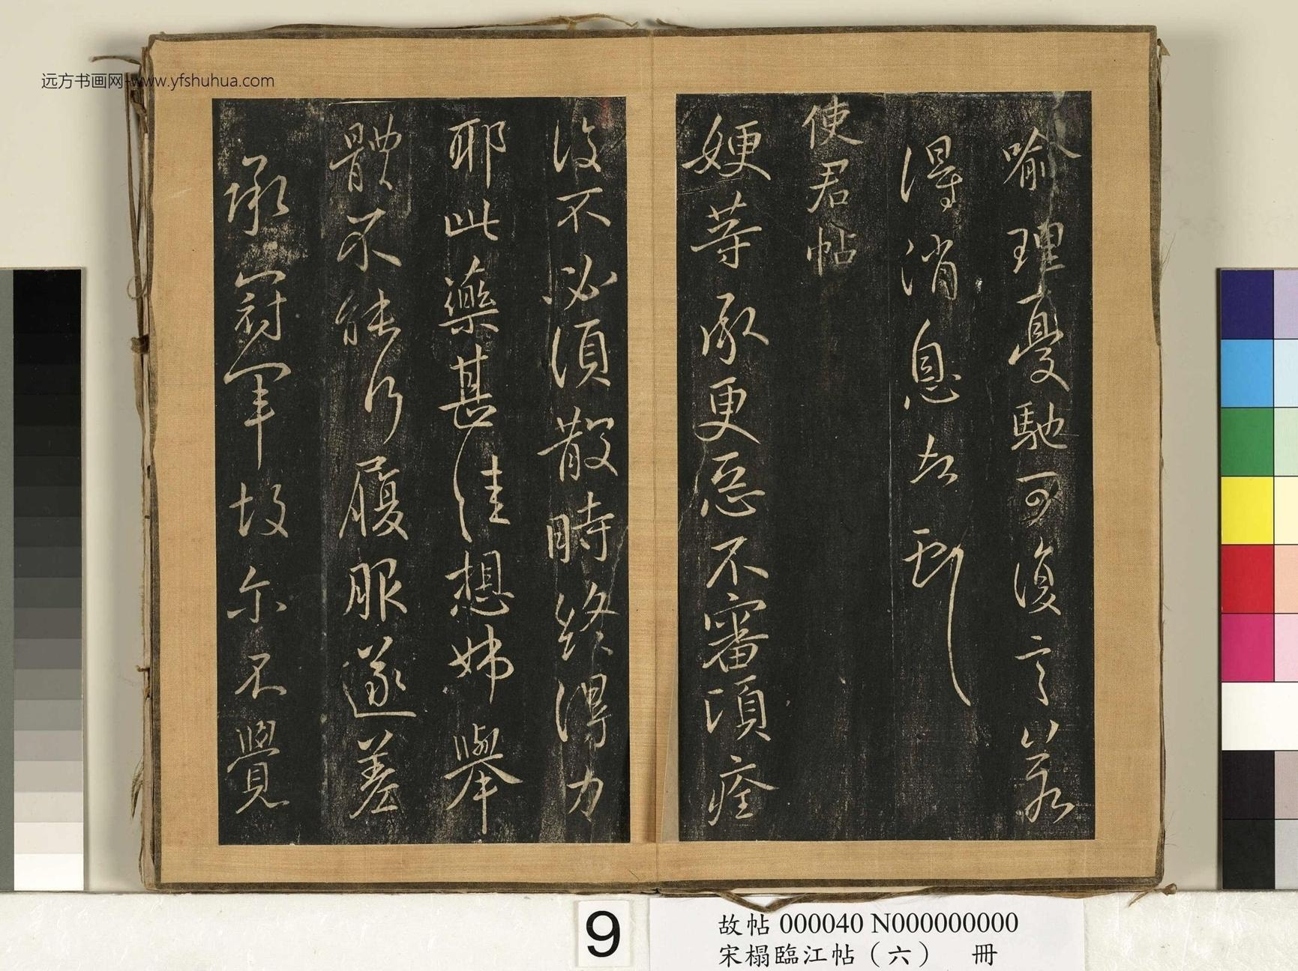 远方书画网-www.yfshuhua.com
喻理憂馳可復言
得消息去
使君帖
嫂等承更惡不審須痊
後不必須散時終得力
耶此藥甚佳想姊舉
體不能行履服遂差
承冠軍故尔不覺
9
故帖 000040 N000000000
宋榻臨江帖（六） 冊